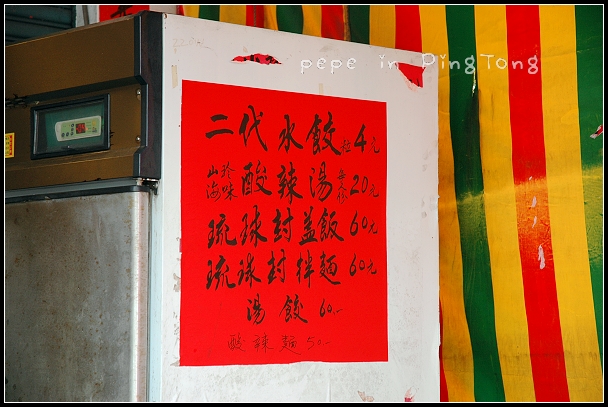 pepe in PingTong
二代水餃粒4元
山珍海味酸辣湯每人份20元
琉球封蓋飯60元
琉球封拌麵60元
湯餃60.-
酸辣麵50.-